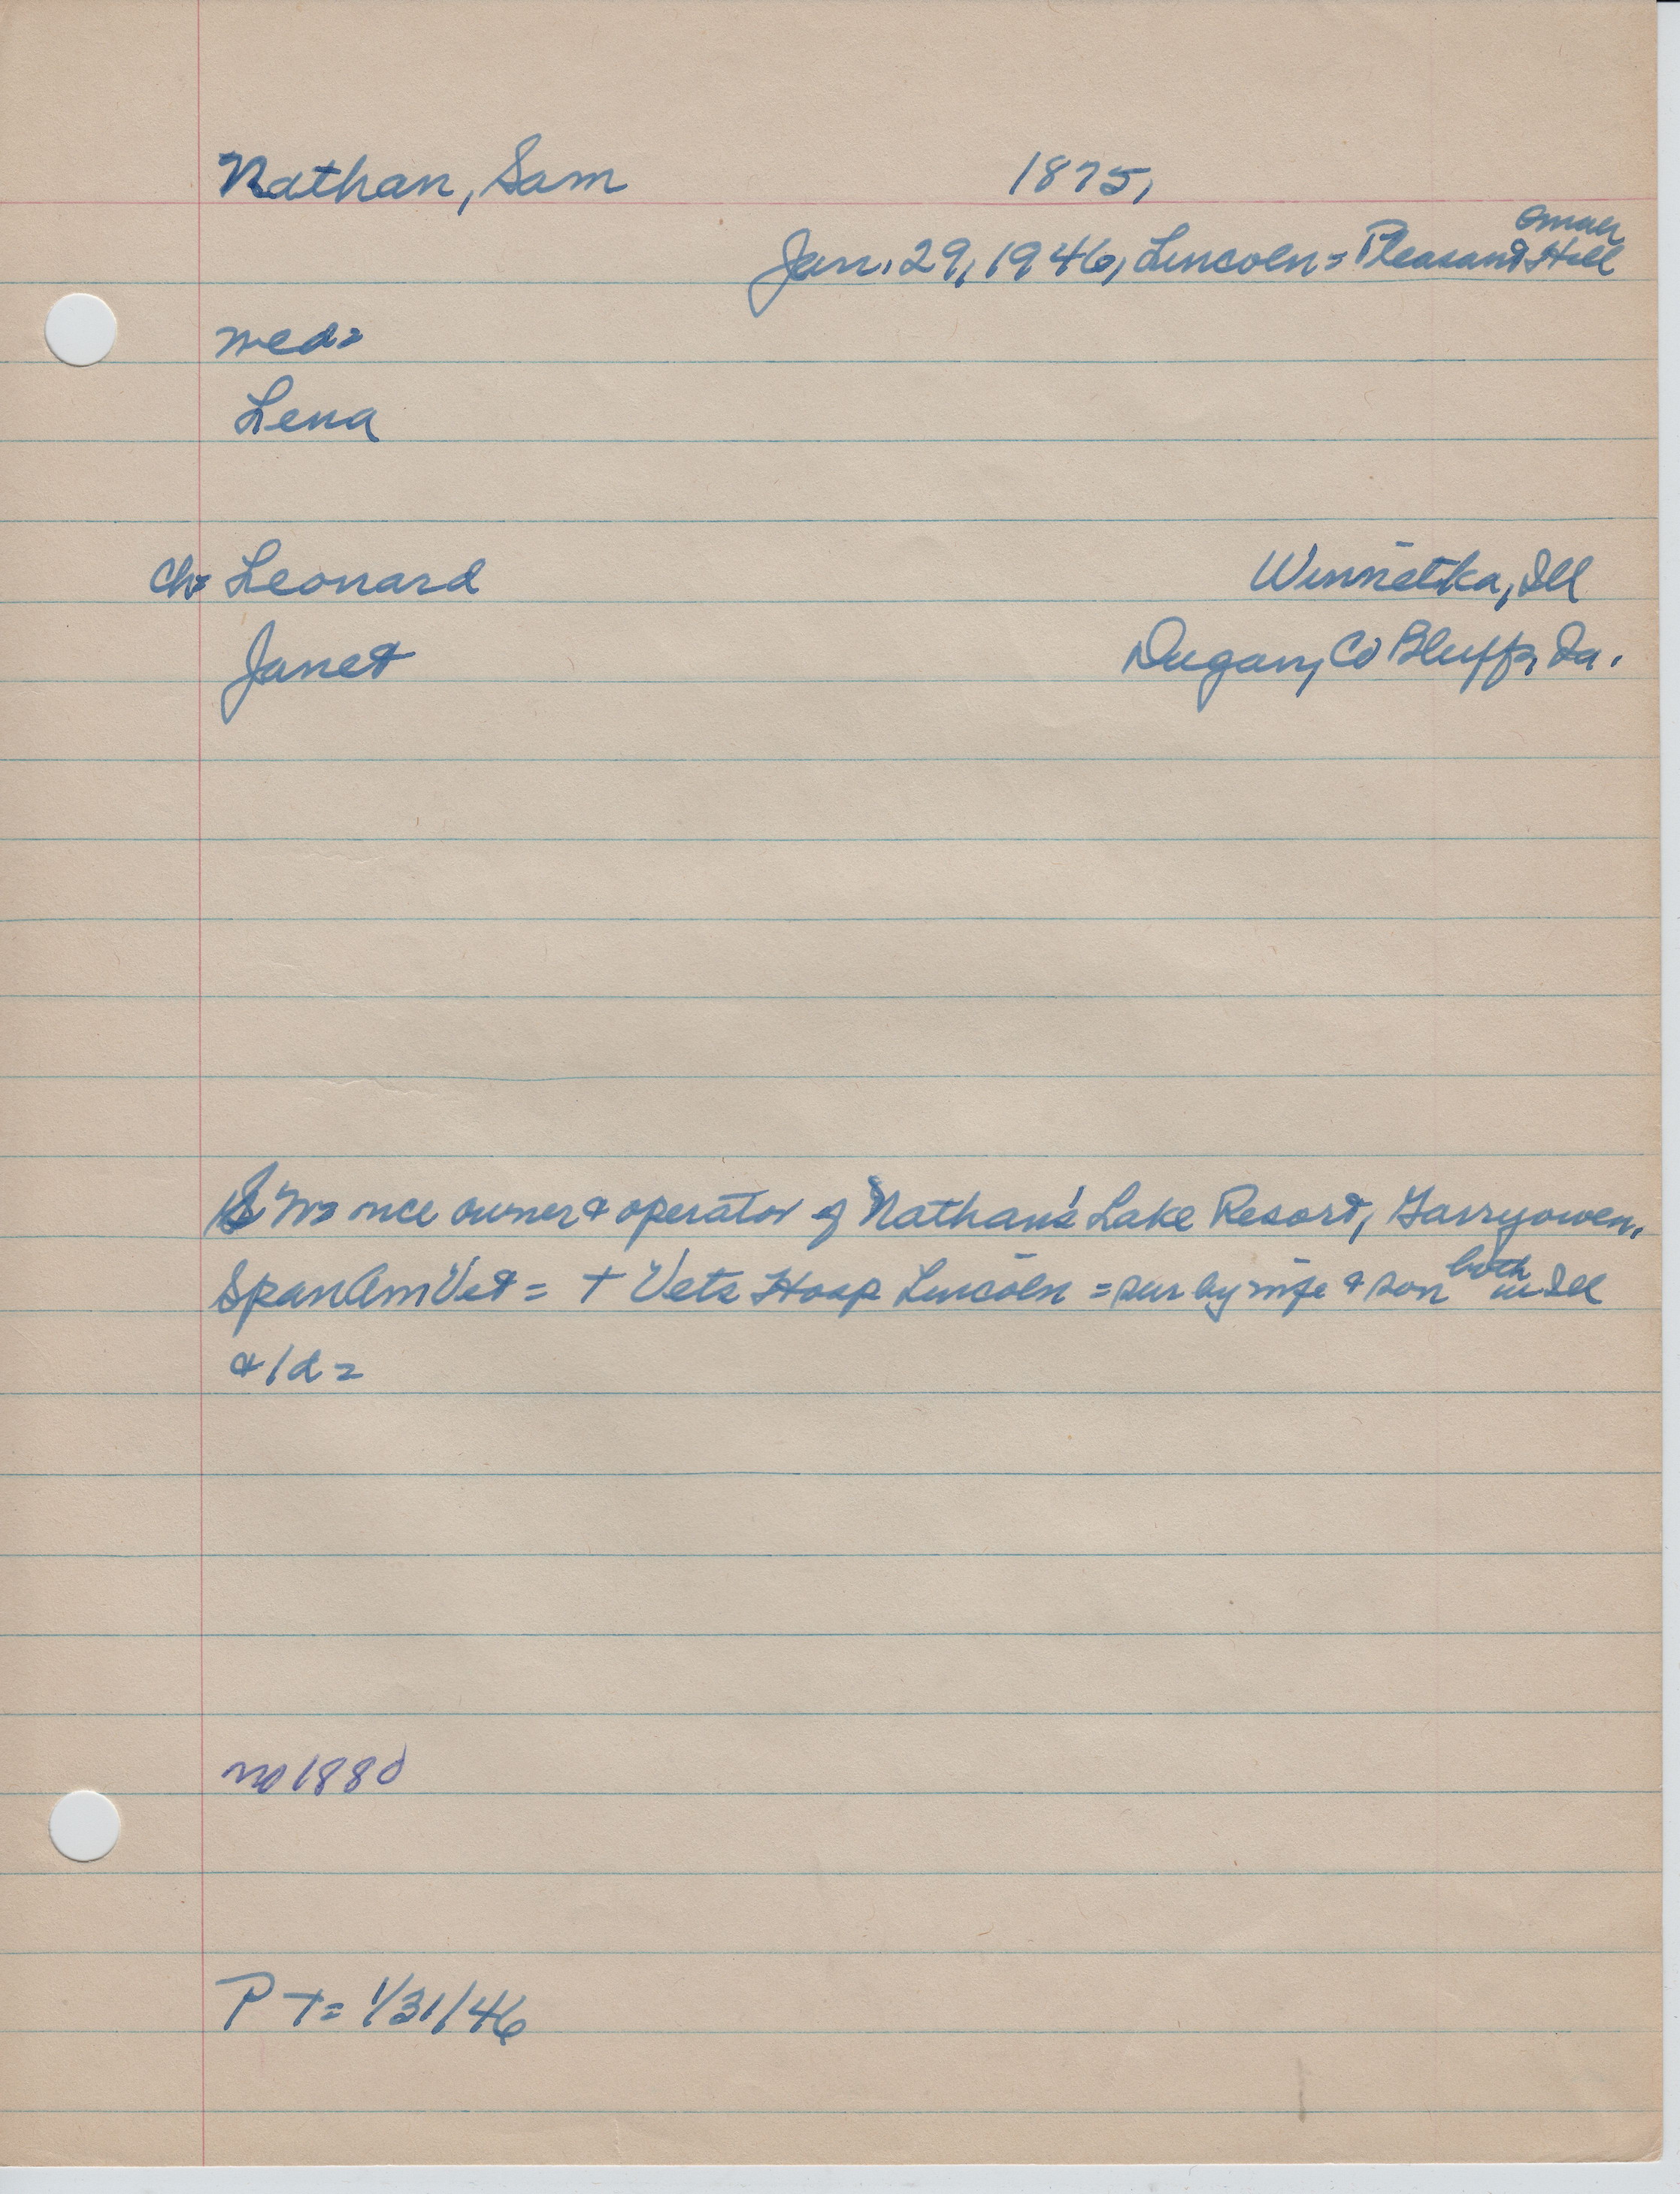 Nathan, Sam 1875,
Omaha
Jan. 29, 1946, Lincoln = Pleasant Hill
wed=
Lena
ch= Leonard Winnetka, Ill
Janet Dugan, Co Bluffs, Ia.
once owner & operator of Nathan's Lake Resort, Garryowen.
both
Span Am Vet = + Vets Hosp Lincoln = sur by wife & son in Ill
& 1d =
no 1880
P T = 1/31/46